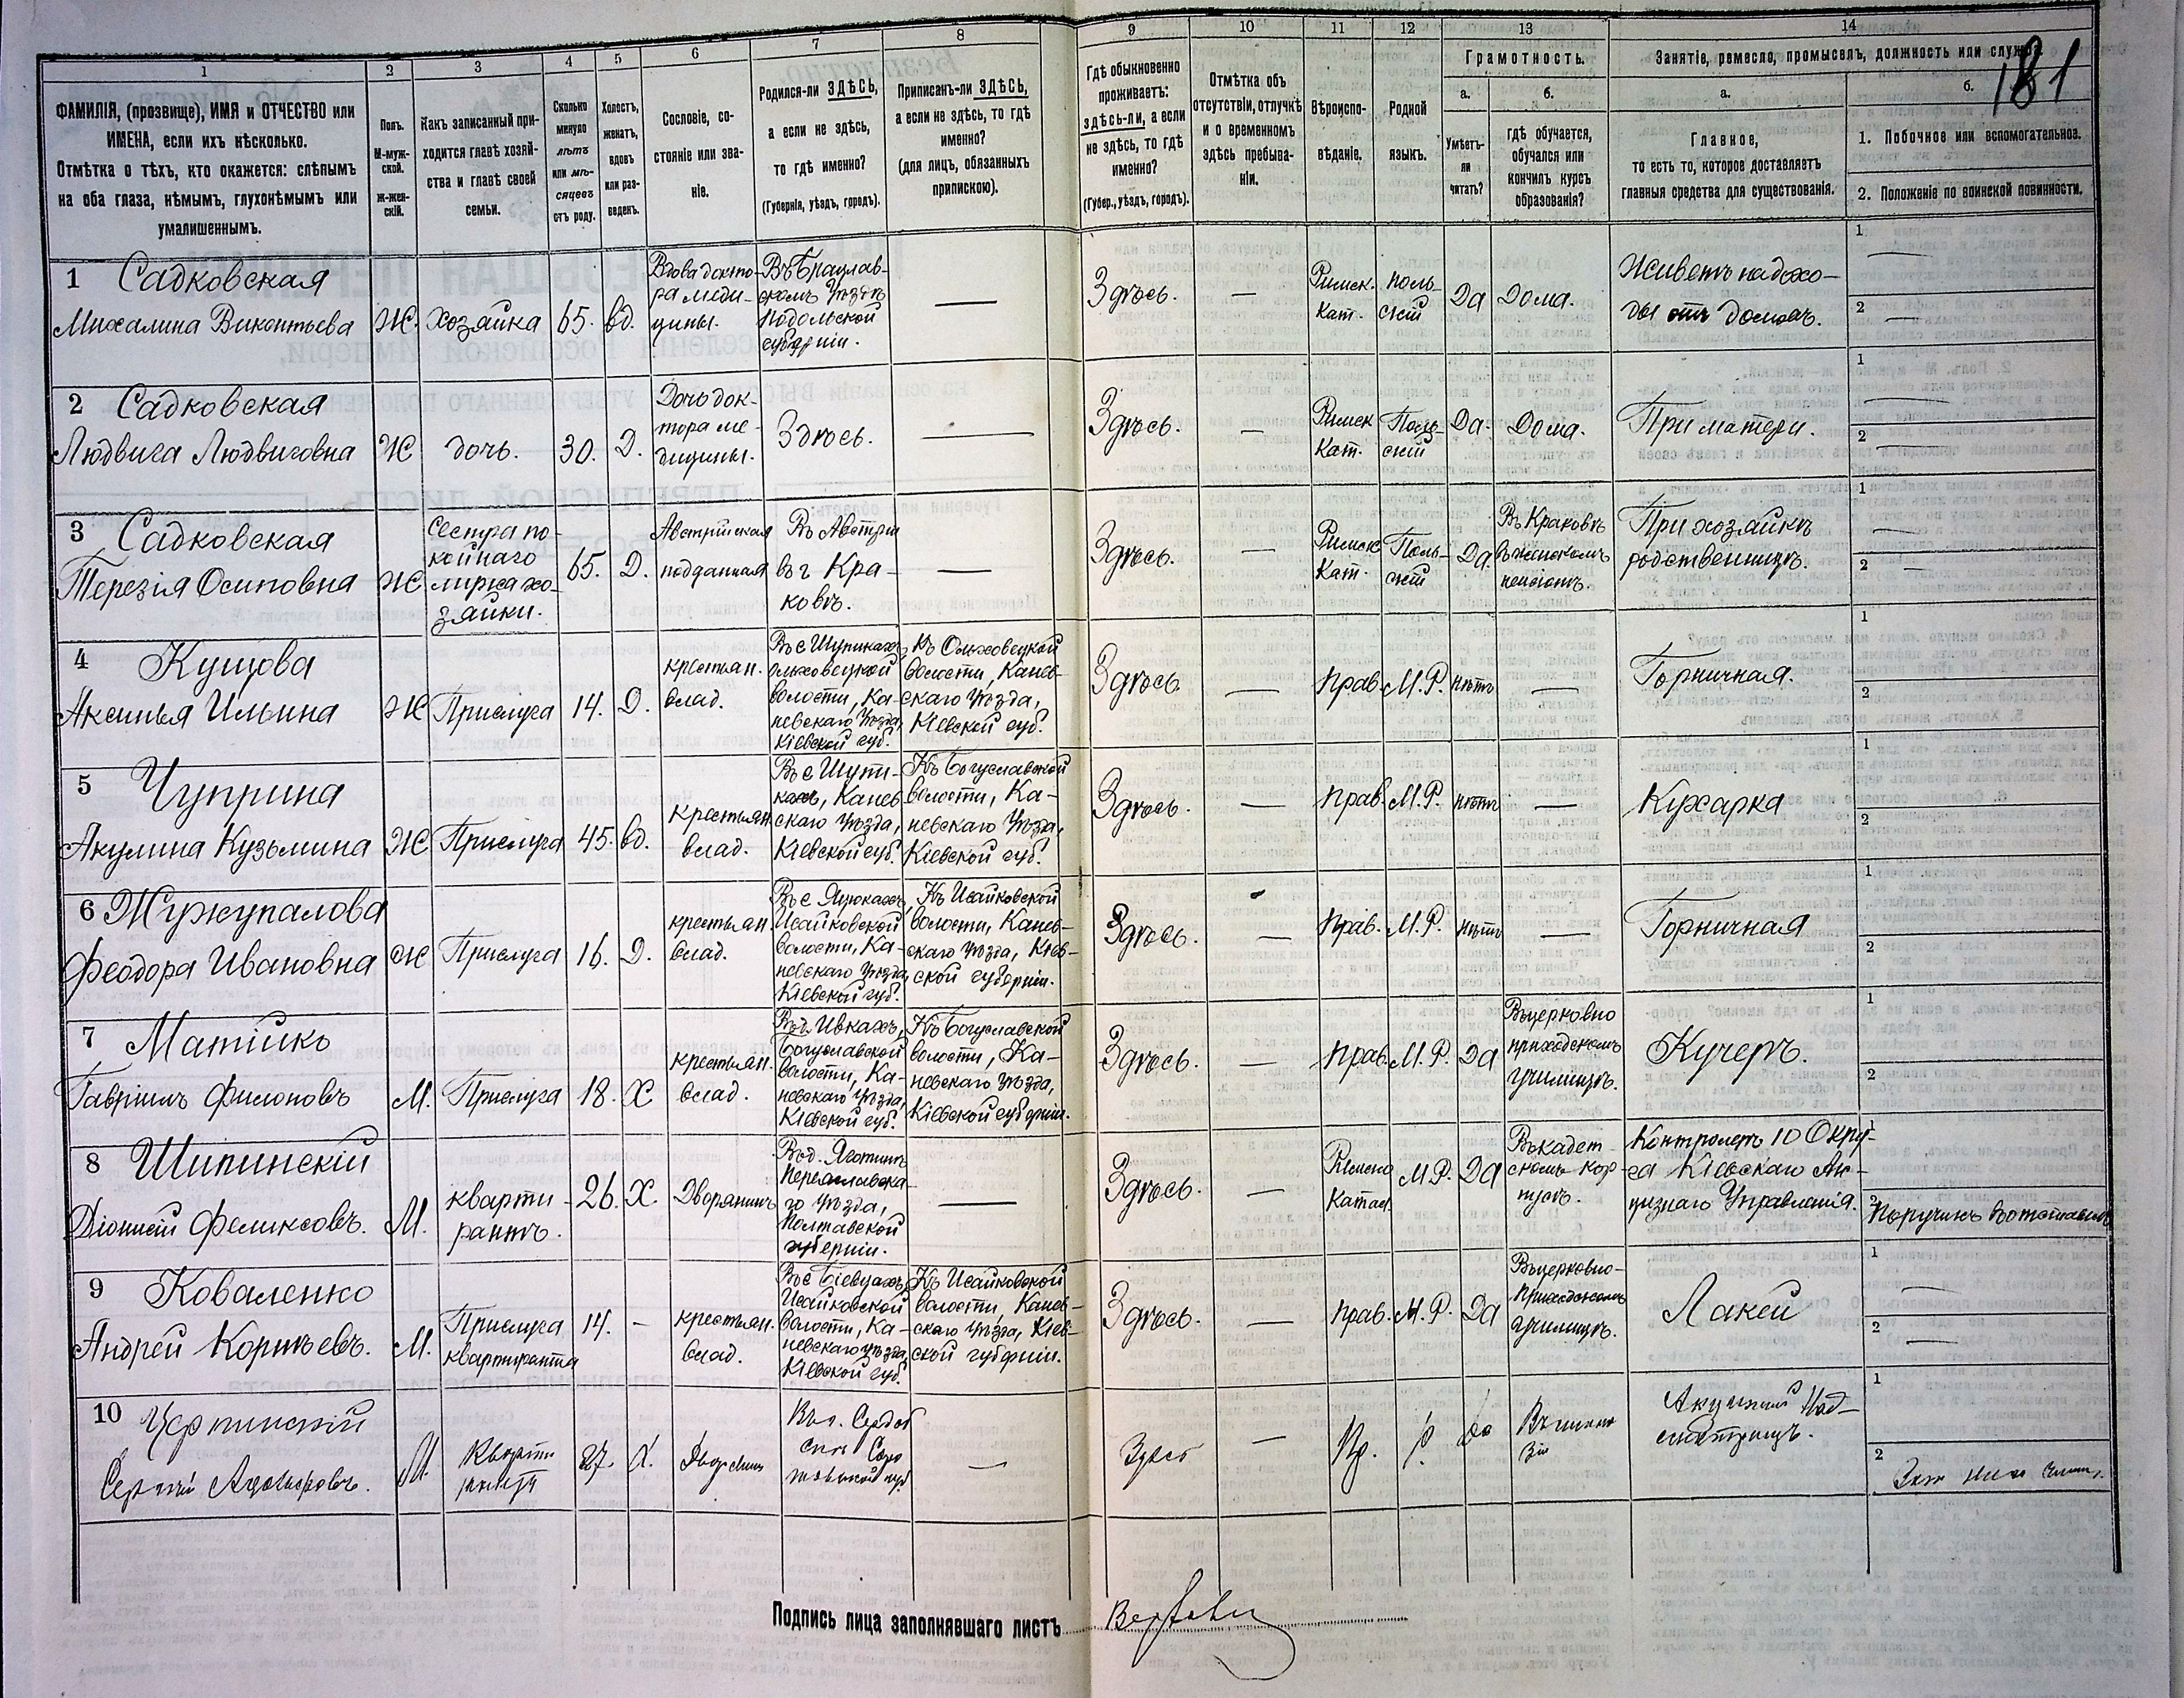 1 2 3 4 5 6 7 8 9 10 11 12 13 14
181
ФАМИЛІЯ, (прозвище), ИМЯ и ОТЧЕСТВО или
ИМЕНА, если ихъ нѣсколько.
Отмѣтка о тѣхъ, кто окажется: слѣпымъ
на оба глаза, нѣмымъ, глухонѣмымъ или
умалишеннымъ.
Полъ.
М-муж-
ской.
ж-жен-
скій.
Какъ записанный при-
ходится главѣ хозяй-
ства и главѣ своей
семьи.
Сколько
минуло
лѣтъ
или мѣ-
сяцевъ
отъ роду.
Холостъ,
женатъ,
вдовъ
или раз-
веденъ.
Сословіе, со-
стояніе или зва-
ніе.
Родился-ли ЗДѢСЬ,
а если не здѣсь,
то гдѣ именно?
(Губернія, уѣздъ, городъ).
Приписанъ-ли ЗДѢСЬ,
а если не здѣсь, то гдѣ
именно?
(для лицъ, обязанныхъ
припискою).
Гдѣ обыкновенно
проживаетъ:
здѣсь-ли, а если
не здѣсь, то гдѣ
именно?
(Губер., уѣздъ, городъ).
Отмѣтка объ
отсутствіи, отлучкѣ
и о временномъ
здѣсь пребыва-
ніи.
Вѣроиспо-
вѣданіе.
Родной
языкъ.
Грамотность.
а.
Умѣетъ-
ли
читать?
б.
гдѣ обучается,
обучался или
кончилъ курсъ
образованія?
Занятіе, ремесло, промыселъ, должность или служба.
а.
Главное,
то есть то, которое доставляетъ
главныя средства для существованія.
б.
1. Побочное или вспомогательное.
2. Положеніе по воинской повинности.
1 Садковская
Михалина Викентьева
Ж.
хозяйка
65.
вд.
Вдова докто-
ра меди-
цины.
Въ Брацлав-
скомъ уѣздѣ
Подольской
губерніи.
—
Здѣсь.
—
Римск.
Кат.
поль-
скій
Да
Дома.
Живетъ на дохо-
ды отъ домовъ.
1 —
2 —
2 Садковская
Людвига Людвиговна
Ж
дочь.
30.
Д.
Дочь док-
тора ме-
дицины.
Здѣсь.
—
Здѣсь.
—
Римск
Кат.
Поль-
скій
Да.
Дома.
При матери.
1 —
2 —
3 Садковская
Терезія Осиповна
Ж
Сестра по-
койнаго
мужа хо-
зяйки.
65.
Д.
Австрійская
подданная
Въ Австріи
въ г. Кра-
ковѣ.
—
Здѣсь.
—
Римск
Кат.
Поль-
скій
Да
Въ Краковѣ
въ женскомъ
пенсіонѣ.
При хозяйкѣ
родственницѣ.
1 —
2 —
4 Кущова
Аксинья Ильина
Ж
Прислуга
14.
Д.
крестьян.
влад.
Ольховецкой
волости, Ка-
невскаго уѣзда,
Кіевской губ.
Къ Ольховецкой
волости, Канев-
скаго уѣзда,
Кіевской губ.
Здѣсь
—
прав.
М.Р.
нѣтъ
—
Горничная.
1
2
5 Чуприна
Акулина Кузьмина
Ж
Прислуга
45.
вд.
крестьян.
влад.
скаго уѣзда,
Кіевской губ.
Къ Богуславской
волости, Ка-
невскаго уѣзда,
Кіевской губ.
Здѣсь.
—
прав.
М.Р.
нѣтъ
—
Кухарка
1
2
6 Жужупалова
Феодора Ивановна
Ж
Прислуга
16.
Д.
крестьян
влад.
Исайковской
волости, Ка-
невскаго уѣзда,
Кіевской губ.
Къ Исайковской
волости, Канев-
скаго уѣзда, Кіев-
ской губерніи.
Здѣсь.
—
прав.
М.Р.
нѣтъ
—
Горничная
1
2
7 Матійкъ
Гавріилъ Филоновъ
М.
Прислуга
18.
Х
крестьян.
влад.
Въ д. Ивкахъ,
Богуславской
волости, Ка-
невскаго уѣзда,
Кіевской губ.
Къ Богуславской
волости, Ка-
невскаго уѣзда,
Кіевской губерніи.
Здѣсь.
—
прав.
М.Р.
Да
Въ церковно
приходскомъ
училищѣ.
Кучеръ.
1
2
8 Шипинскій
Діонисій Феликсовъ.
М.
кварти-
рантъ.
26.
Х.
Дворянинъ
Въ д. Яготинѣ
Переяславска-
го уѣзда,
Полтавской
губерніи.
—
Здѣсь.
—
Римско
Катол.
М.Р.
Да
Въ кадет-
скомъ кор-
пусѣ.
Контролеръ 10 Окру-
га Кіевскаго Ак-
цизнаго Управленія.
1
2 Поручикъ въ отставкѣ
9 Коваленко
Андрей Корнѣевъ.
М.
Прислуга
квартиранта
14.
-
крестьян.
влад.
Въ с Біевцахъ,
Исайковской
волости, Ка-
невскаго уѣзда,
Кіевской губ.
Къ Исайковской
волости, Канев-
скаго уѣзда, Кіев-
ской губерніи.
Здѣсь.
—
прав.
М.Р.
Да
Въ церковно-
приходскомъ
училищѣ.
Лакей
1 —
2 —
10
Сергѣй
М.
Кварти
рантъ
27.
Х.
Дворянинъ
—
Здѣсь
—
Пр.
Р.
да
Акцизный Над-
смотрщикъ.
1
2
Подпись лица заполнявшаго листъ